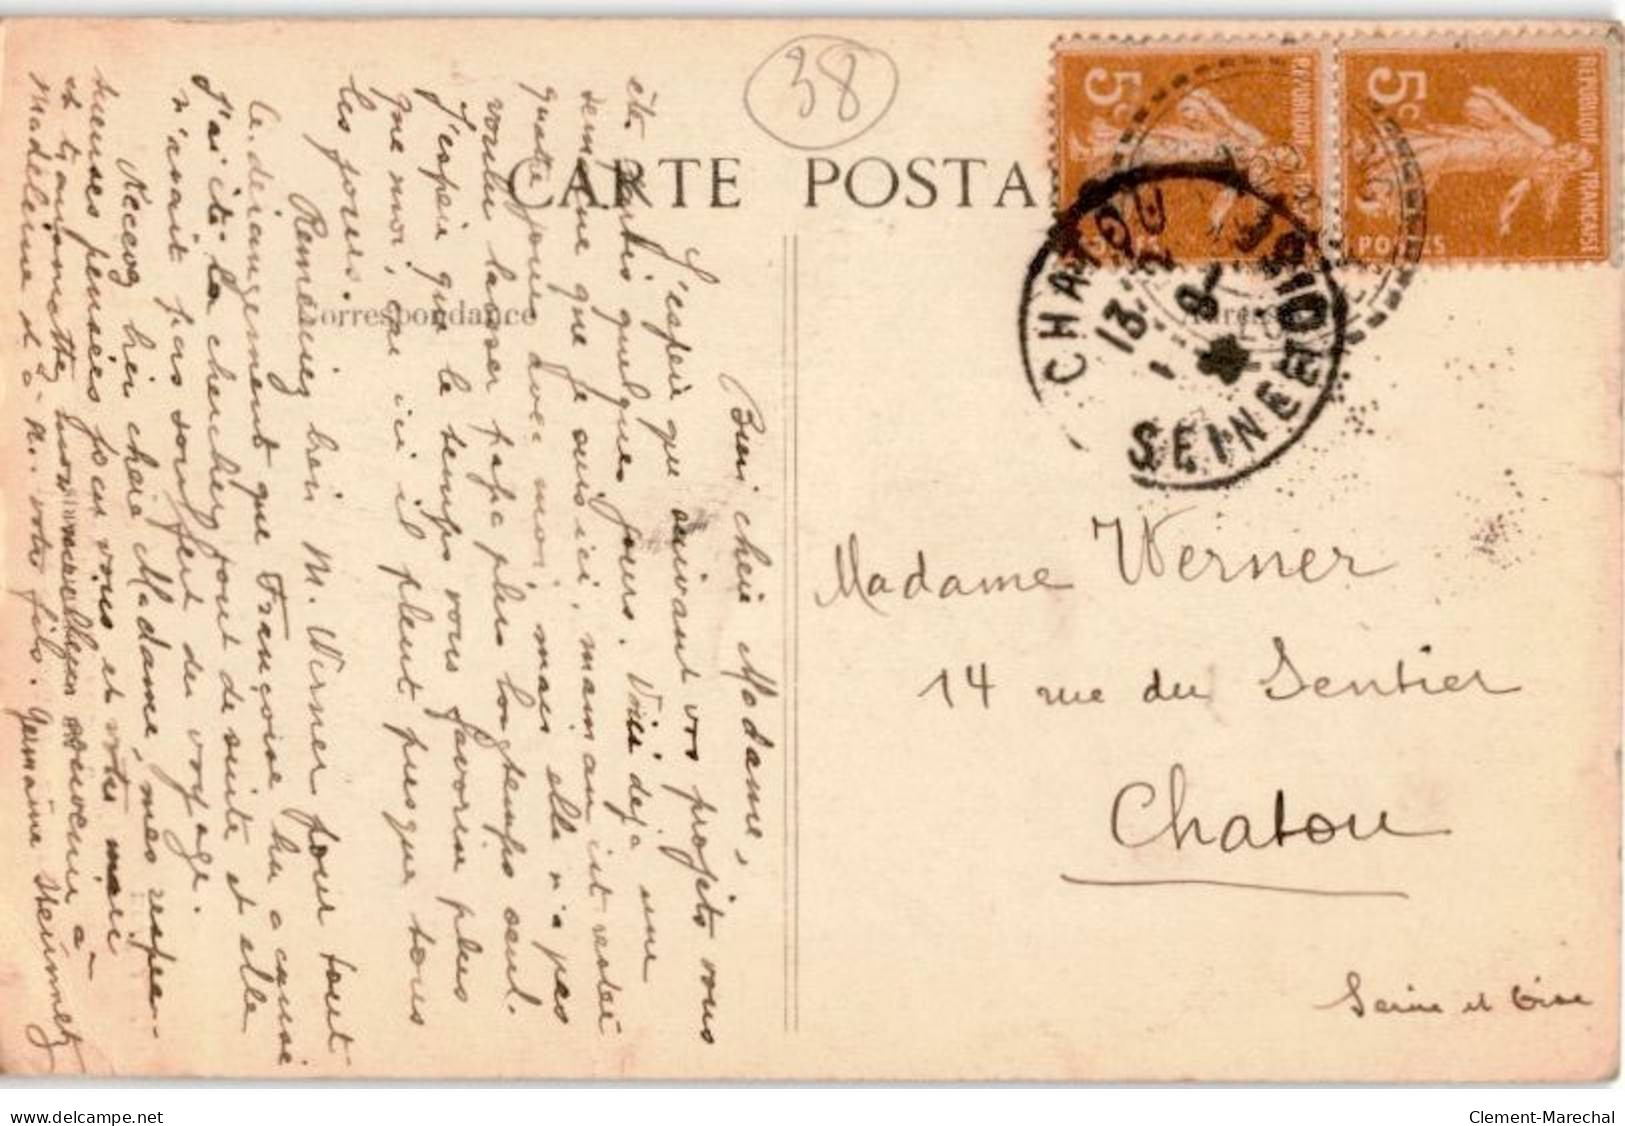 38
CARTE POSTA
Correspondance
REPUBLIQUE FRANCAISE
5c
POSTES
REPUBLIQUE FRANCAISE
5c
CHATOU
13
8
SEINE ET OISE
Bien chère Madame,
J'espère que suivant vos projets vous
êtes partis quelques jours. Voici déjà une
semaine que je suis ici, maman est restée
quatre jours avec moi, mais elle n'a pas
voulu laisser papa plus longtemps seul.
J'espère que le temps vous favorise plus
que moi, car ici il pleut presque tous
les jours.
Remerciez bien M. Werner pour tout
le dérangement que Françoise lui a causé
J'ai été la chercher tout de suite et elle
n'avait pas souffert du voyage.
Recevez bien chère Madame, mes respec-
tueuses pensées pour vous et votre mari
et transmettez mon meilleur souvenir à
Madeleine et à votre fils. Germaine Steinmetz
Madame Werner
14 rue du Sentier
Chatou
Seine et Oise
www.delcampe.net
Clement-Marechal